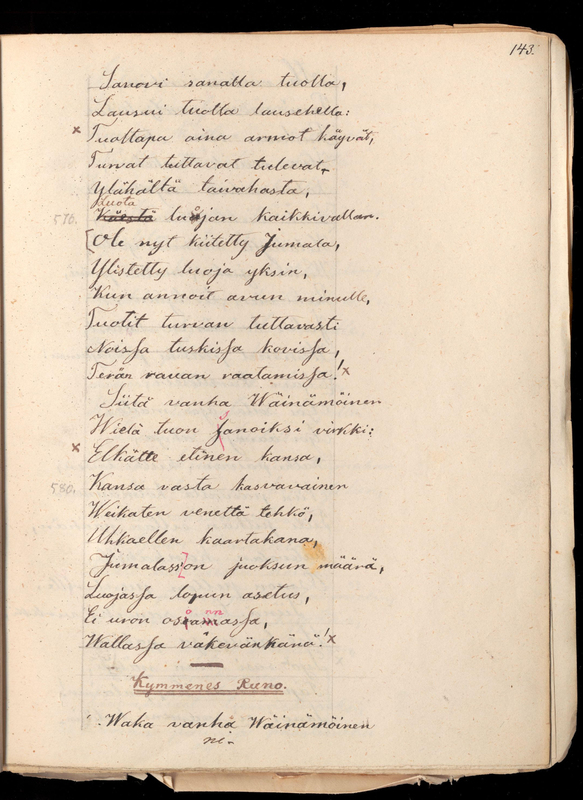 143.
Sanovi sanalla tuolla,
Lausui tuolla lausehella:
x Tuoltapa aina armot käyvät,
Turvat tuttavat tulevat,
Ylähältä taivahasta,
Luota
570. Käestä luojan kaikkivallan.
[Ole nyt kiitetty Jumala,
Ylistetty luoja yksin,
Kun annoit avun minulle,
Tuotit turvan tuttavasti
Noissa tuskissa kovissa,
Terän rauan raatamissa!x
Siitä vanha Wäinämöinen
Wielä tuon sanoiksi virkki:
x Elkätte etinen kansa,
580. Kansa vasta kasvavainen
Weikaten venettä tehkö,
Uhkaellen kaartakana,
Jumalass]on juoksun määrä,
Luojassa lopun asetus,
Ei uron osaamassa,
Wallassa väkevänkänä!x
Kymmenes Runo.
Waka vanha Wäinämöinen
ni-